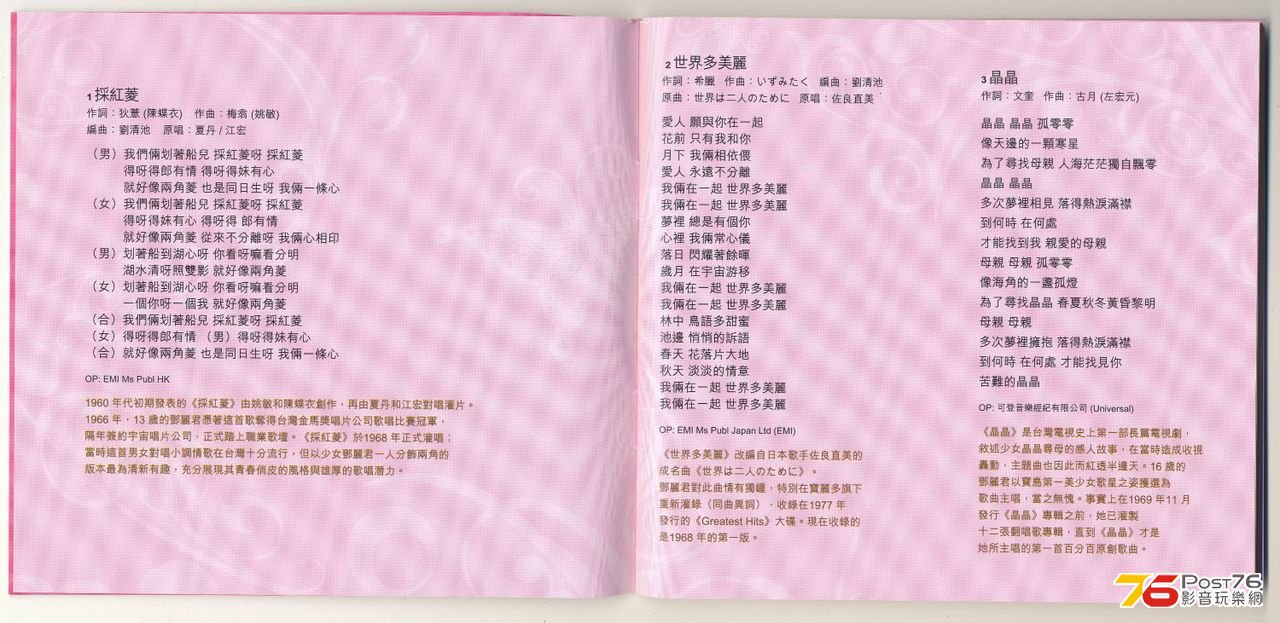 1 採紅菱
作詞：狄薏 (陳蝶衣)　作曲：梅翁 (姚敏)
編曲：劉清池　原唱：夏丹 / 江宏
（男）我們倆划著船兒 採紅菱呀 採紅菱
得呀得郎有情 得呀得妹有心
就好像兩角菱 也是同日生呀 我倆一條心
（女）我們倆划著船兒 採紅菱呀 採紅菱
得呀得妹有心 得呀得 郎有情
就好像兩角菱 從來不分離呀 我倆心相印
（男）划著船到湖心呀 你看呀嘛看分明
湖水清呀照雙影 就好像兩角菱
（女）划著船到湖心呀 你看呀嘛看分明
一個你呀一個我 就好像兩角菱
（合）我們倆划著船兒 採紅菱呀 採紅菱
（女）得呀得郎有情 （男）得呀得妹有心
（合）就好像兩角菱 也是同日生呀 我倆一條心
OP: EMI Ms Publ HK
1960 年代初期發表的《採紅菱》由姚敏和陳蝶衣創作，再由夏丹和江宏對唱灌片。
1966 年，13 歲的鄧麗君憑著這首歌奪得台灣金馬獎唱片公司歌唱比賽冠軍，
隔年簽約宇宙唱片公司，正式踏上職業歌壇。《採紅菱》於1968 年正式灌唱；
當時這首男女對唱小調情歌在台灣十分流行，但以少女鄧麗君一人分飾兩角的
版本最為清新有趣，充分展現其青春俏皮的風格與雄厚的歌唱潛力。
2 世界多美麗
作詞：希臘　作曲：いずみたく　編曲：劉清池
原曲：世界は二人のために　原唱：佐良直美
愛人 願與你在一起
花前 只有我和你
月下 我倆相依偎
愛人 永遠不分離
我倆在一起 世界多美麗
我倆在一起 世界多美麗
夢裡 總是有個你
心裡 我倆常心儀
落日 閃耀著餘暉
歲月 在宇宙游移
我倆在一起 世界多美麗
我倆在一起 世界多美麗
林中 鳥語多甜蜜
池邊 悄悄的訴語
春天 花落片大地
秋天 淡淡的情意
我倆在一起 世界多美麗
我倆在一起 世界多美麗
OP: EMI Ms Publ Japan Ltd (EMI)
《世界多美麗》改編自日本歌手佐良直美的
成名曲《世界は二人のために》。
鄧麗君對此曲情有獨鍾，特別在寶麗多旗下
重新灌錄（同曲異詞），收錄在1977 年
發行的《Greatest Hits》大碟。現在收錄的
是1968 年的第一版。
3 晶晶
作詞：文奎　作曲：古月 (左宏元)
晶晶 晶晶 孤零零
像天邊的一顆寒星
為了尋找母親 人海茫茫獨自飄零
晶晶 晶晶
多次夢裡相見 落得熱淚滿襟
到何時 在何處
才能找到我 親愛的母親
母親 母親 孤零零
像海角的一盞孤燈
為了尋找晶晶 春夏秋冬黃昏黎明
母親 母親
多次夢裡擁抱 落得熱淚滿襟
到何時 在何處 才能找見你
苦難的晶晶
OP: 可登音樂經紀有限公司 (Universal)
《晶晶》是台灣電視史上第一部長篇電視劇，
敘述少女晶晶尋母的感人故事，在當時造成收視
轟動，主題曲也因此而紅透半邊天。16 歲的
鄧麗君以寶島第一美少女歌星之姿獲選為
歌曲主唱，當之無愧。事實上在1969 年11 月
發行《晶晶》專輯之前，她已灌製
十二張翻唱歌專輯，直到《晶晶》才是
她所主唱的第一首百分百原創歌曲。
76 POST76
影音玩樂網